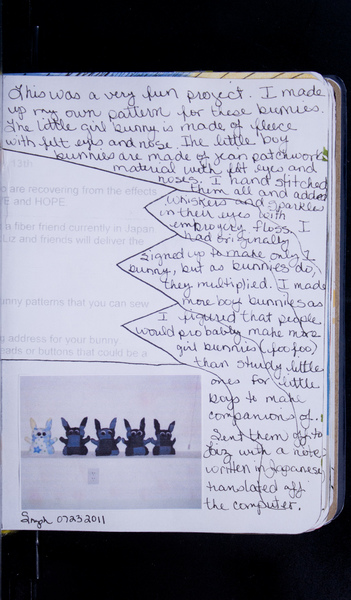 This was a very fun project. I made
up my own pattern for these bunnies.
The little girl bunny is made of fleece
with felt eyes and nose. The little boy
bunnies are made of jean patchwork
material with felt eyes and
noses. I hand stitched
them all and added
whiskers and sparkles
in their eyes with
floss. I
had originally
signed up to make only 1
bunny, but as bunnies do,
they multiplied. I made
more boy bunnies as
I figured that people
would probably make more
girl bunnies (foofoo)
than sturdy little
ones for little
boys to make
companions of. I
sent them off to
Liz with a note
written in Japanese
translated off
the computer.
13th
are recovering from the effects
E and HOPE.
a fiber friend currently in Japan
Liz and friends will deliver the
bunny patterns that you can sew
address for your bunny
or buttons that could be a
07232011